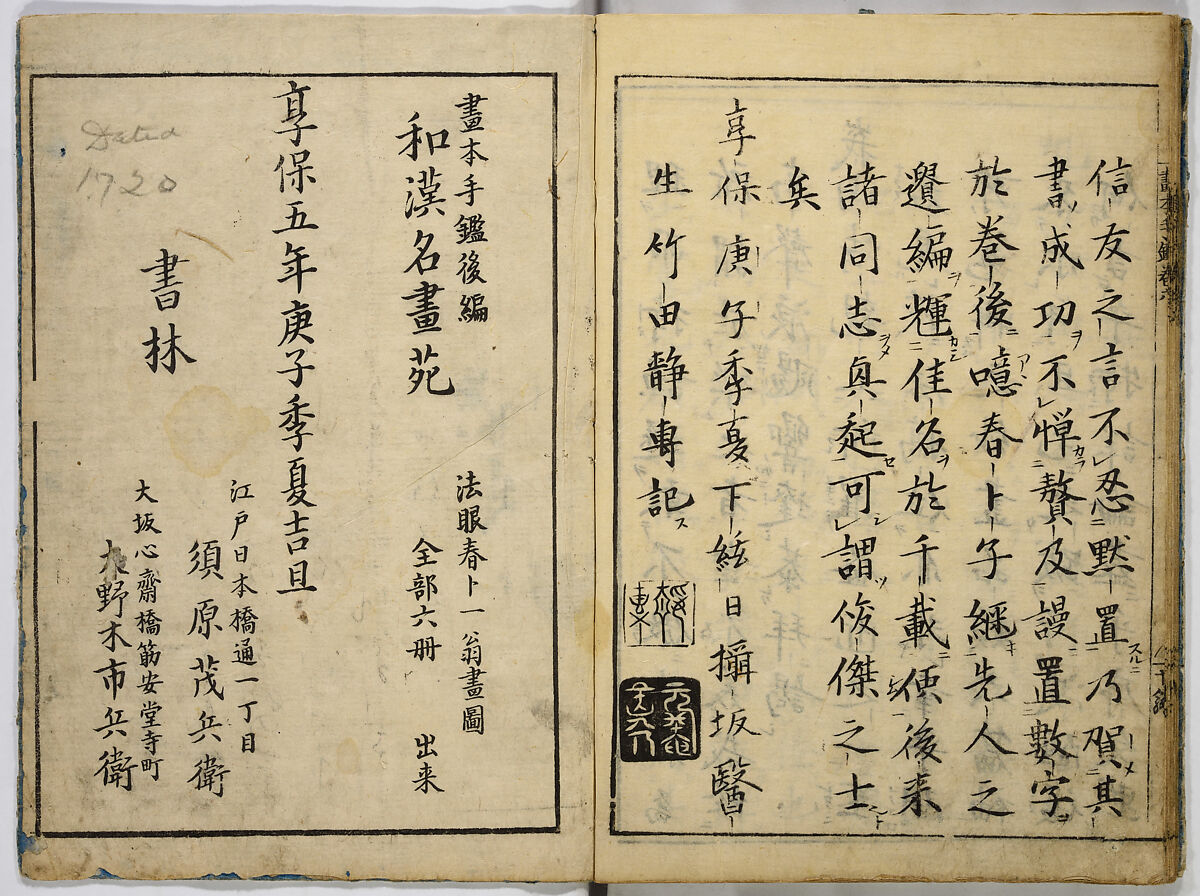 信友之言不忍默置乃賀其
書成功不憚贅及謾置數字
於卷後噫春卜子継先人之
遺編輝佳名於千載使後来
諸同志真起可謂俊傑之士
矣
享保庚子季夏下絃日攝坂醫
生竹田静專記
畫本手鑑後編
和漢名畫苑
法眼春卜一翁畫圖
全部六册 出来
享保五年庚子季夏吉旦
書林
江戸日本橋通一丁目
須原茂兵衛
大坂心齋橋筋安堂寺町
大野木市兵衛
Dated
1720